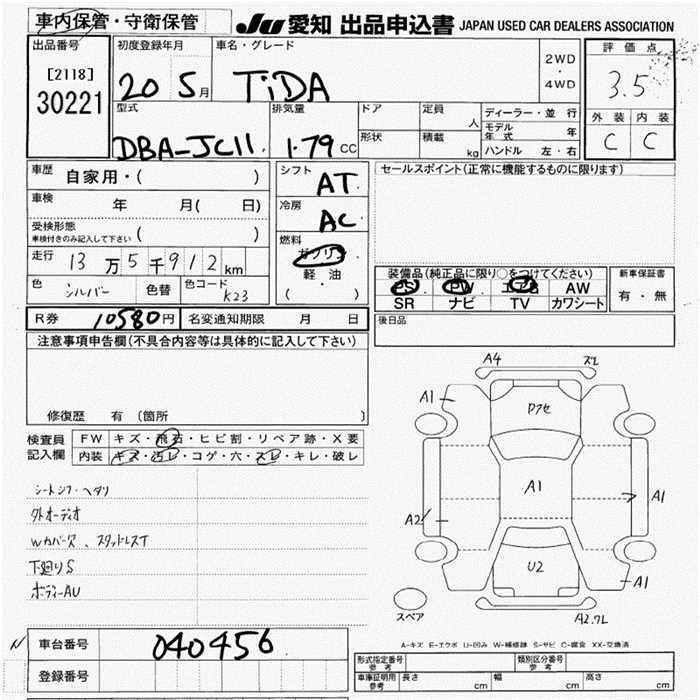 車内保管・守衛保管
JU 愛知 出品申込書 JAPAN USED CAR DEALERS ASSOCIATION
出品番号
[2118]
30221
初度登録年月
20 5月
車名・グレード
TiDA
2WD
・
4WD
評価点
3.5
外装 内装
C C
型式
DBA-JC11
排気量
1.79 CC
ドア
形状
定員
人
積載
kg
ディーラー・並行
モデル年式 年
ハンドル 左・右
車歴 自家用・( )
車検 年 月( 日)
受検形態
車検付きのみ記入して下さい ( )
走行 13万5千912km
色 シルバー 色替 色コード K23
シフト
AT
冷房
AC
燃料
ガソリン
軽・油
( )
セールスポイント(正常に機能するものに限ります)
装備品(純正品に限り○をつけてください)
PS PW エアB AW
SR ナビ TV カワシート
新車保証書
有・無
後日品
R券 10580円 名変通知期限 月 日
注意事項申告欄(不具合内容等は具体的に記入して下さい)
修復歴 有 (箇所 )
検査員記入欄
FW キズ・飛石・ヒビ割・リペア跡・X要
内装 キズ・汚レ・コゲ・穴・スレ・キレ・破レ
シートシワ・ヘタリ
外オーディオ
Wカバー欠、スタッドレスT
下廻りS
ボディーAU
A4
スレ
A1
Dアセ
A1
A1
A2
U2
A1
スペア
A2.スレ
A-キズ E-エクボ U-凹み W-補修跡 S-サビ C-腐食 XX-交換済
N
車台番号 040456
登録番号
形式指定番号
参考
類別区分番号
参考
車庫証明用
参考
長さ cm 幅 cm 高さ cm